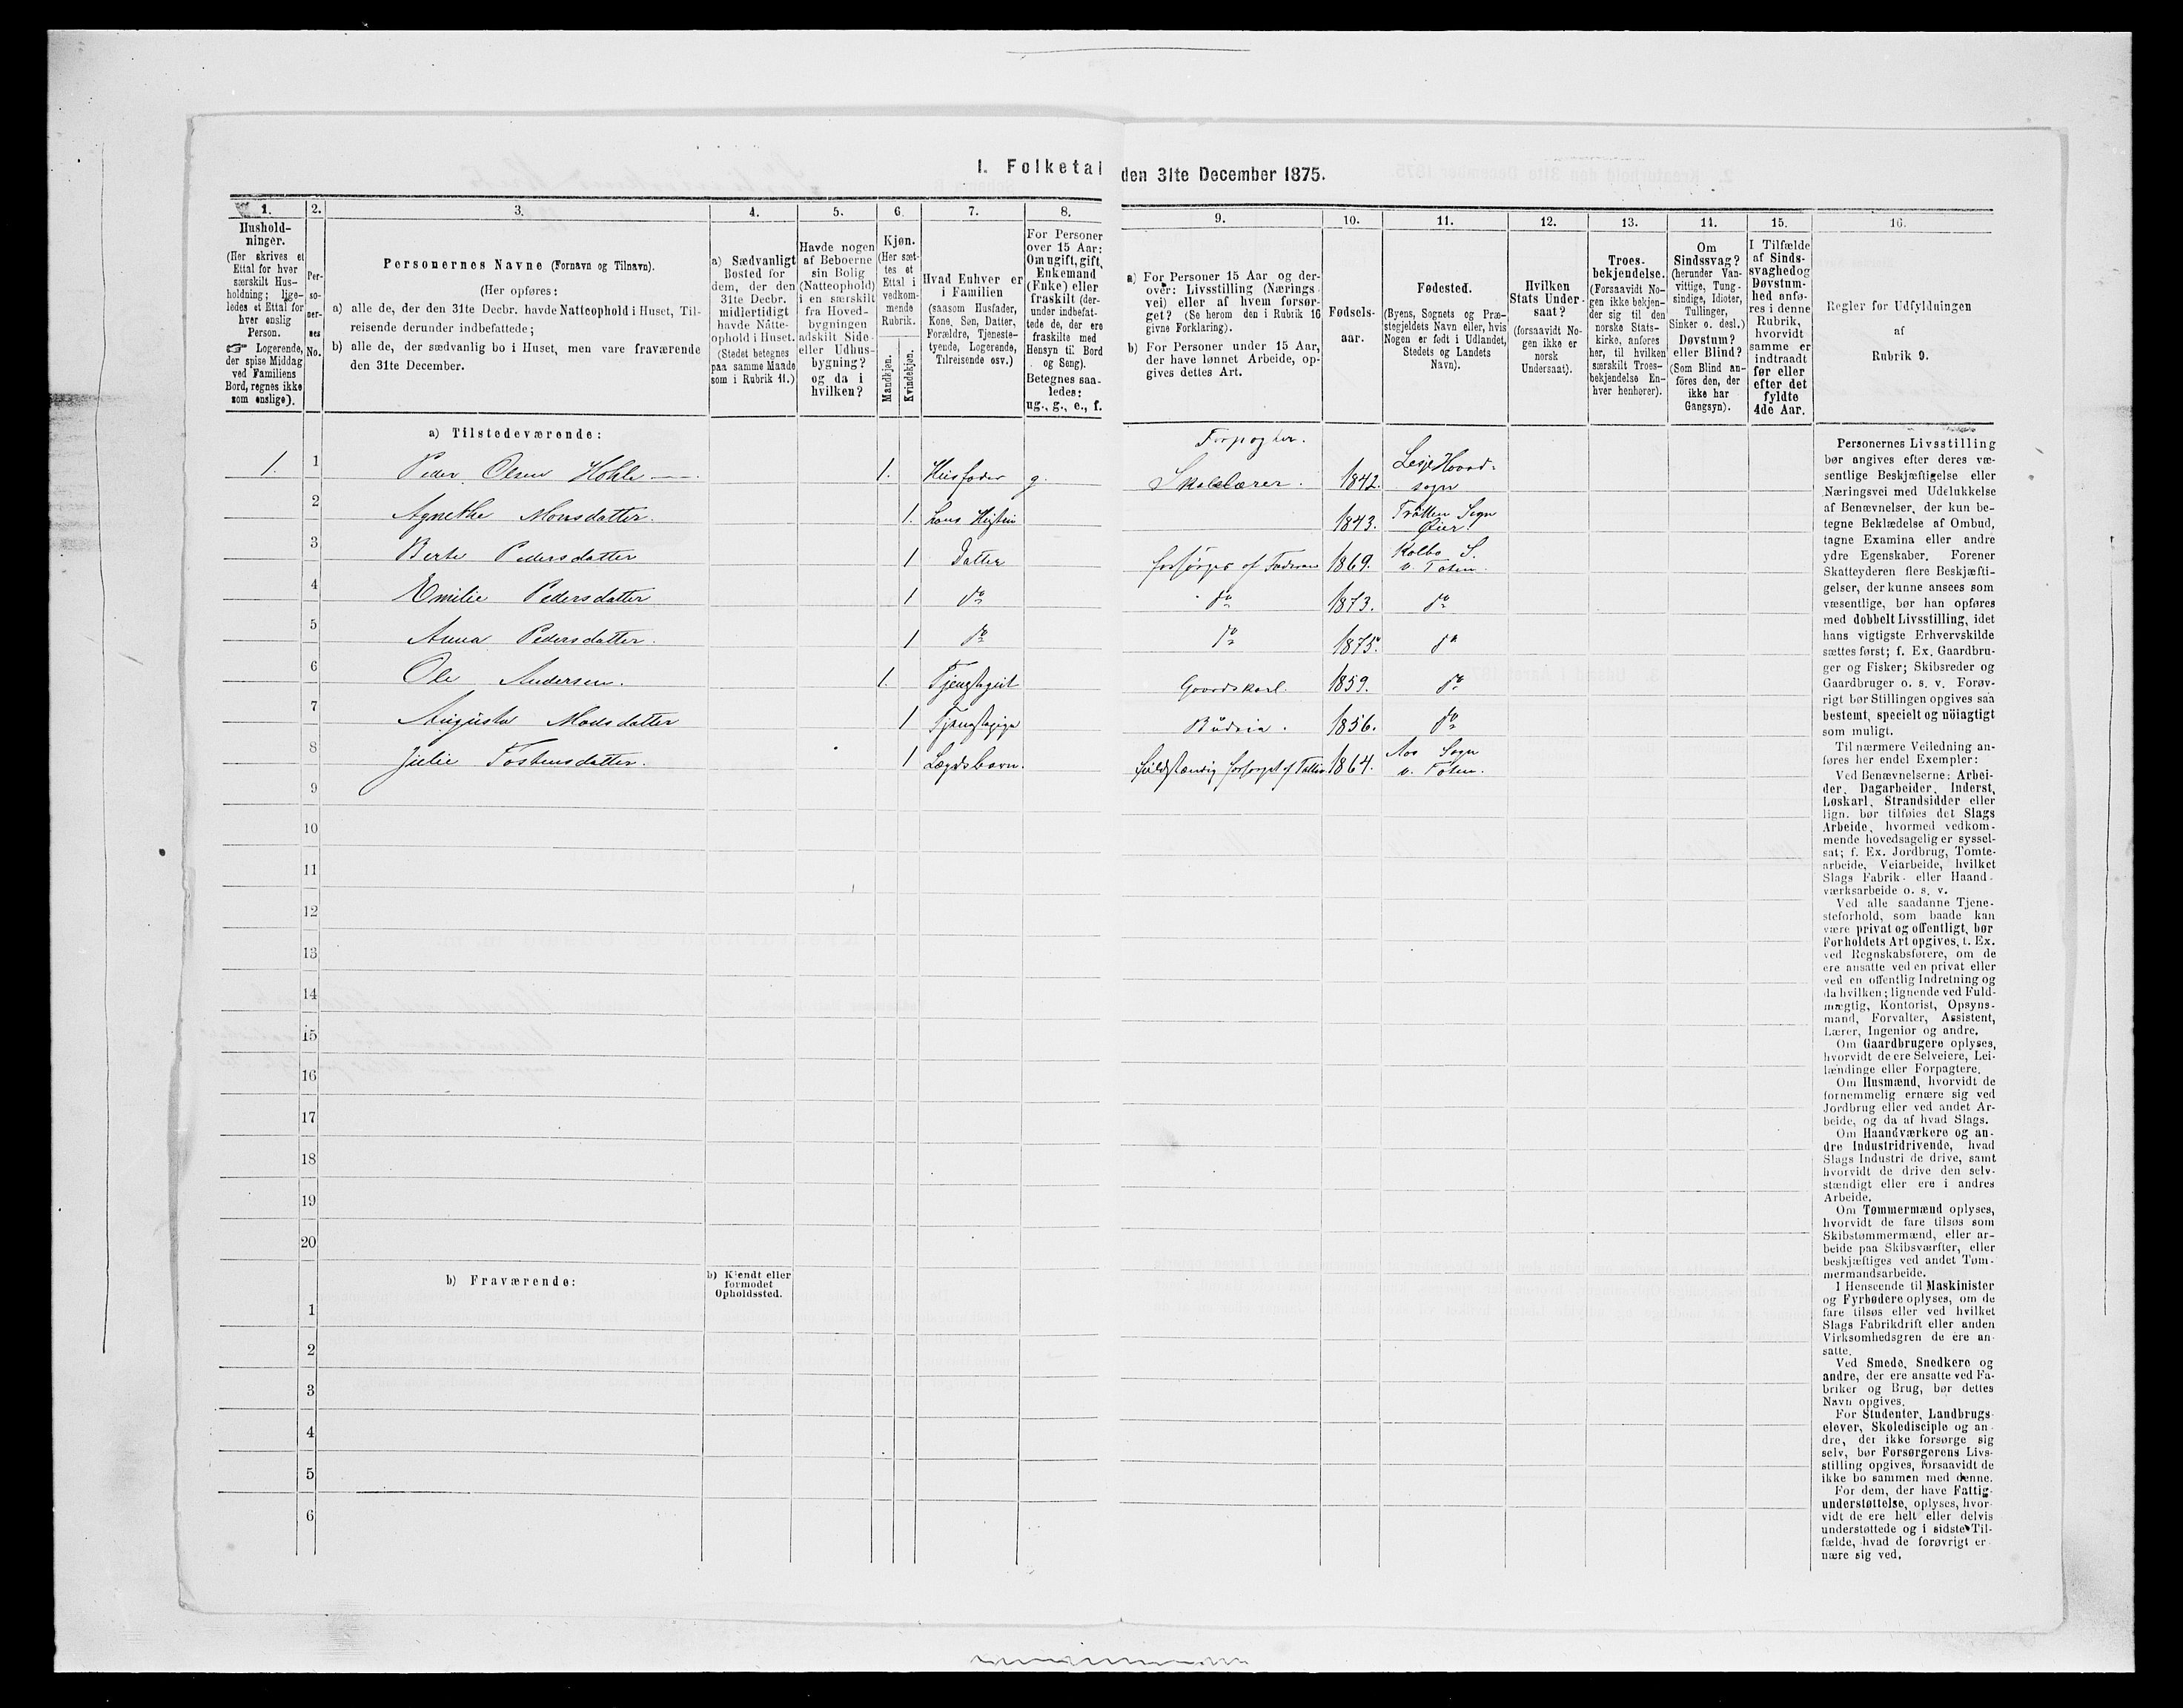 I. Folketal den 31te December 1875.
1.
Husholdninger.
(Her skrives et
Ettal for hver
særskilt Hus-
holdning; lige-
ledes et Ettal for
hver enslig
Person.
☞ Logerende,
der spise Middag
ved Familiens
Bord, regnes ikke
som enslige).
2.
Per-
so-
ner-
nes
No.
3.
Personernes Navne (Fornavn og Tilnavn).
(Her opføres:
a) alle de, der den 31te Decbr. havde Natteophold i Huset, Til-
reisende derunder indbefattede;
b) alle de, der sædvanlig bo i Huset, men vare fraværende
den 31te December.
4.
a) Sædvanligt
Bosted for
dem, der den
31te Decbr.
midlertidigt
havde Natte-
ophold i Huset.
(Stedet betegnes
paa samme Maade
som i Rubrik 11.)
5.
Havde nogen
af Beboerne
sin Bolig
(Natteophold)
i en særskilt
fra Hoved-
bygningen
adskilt Side-
eller Udhus-
bygning?
og da i
hvilken?
6.
Kjøn.
(Her sæt-
tes et
Ettal i
vedkom-
mende
Rubrik.
Mandkjøn.
Kvindekjøn.
7.
Hvad Enhver er
i Familien
(saasom Husfader,
Kone, Søn, Datter,
Forældre, Tjeneste-
tyende, Logerende,
Tilreisende osv.)
8.
For Personer
over 15 Aar:
Om ugift, gift,
Enkemand
(Enke) eller
fraskilt (der-
under indbefat-
tede de, der ere
fraskilte med
Hensyn til Bord
og Seng).
Betegnes saa-
ledes:
ug., g., e., f.
9.
a) For Personer 15 Aar og der-
over: Livsstilling (Nærings-
vei) eller af hvem forsør-
get? (Se herom den i Rubrik 16
givne Forklaring).
b) For Personer under 15 Aar,
der have lønnet Arbeide, op-
gives dettes Art.
10.
Fødsels-
aar.
11.
Fødested.
(Byens, Sognets og Præ-
stegjeldets Navn eller, hvis
Nogen er født i Udlandet,
Stedets og Landets
Navn).
12.
Hvilken
Stats Under-
saat?
(forsaavidt No-
gen ikke er
norsk
Undersaat).
13.
Troes-
bekjendelse.
(Forsaavidt No-
gen ikke bekjen-
der sig til den
norske Stats-
kirke, anføres
her, til hvilken
særskilt Troes-
bekjendelse En-
hver henhører).
14.
Om
Sindssvag?
(herunder Van-
vittige, Tung-
sindige, Idioter,
Tullinger,
Sinker o. desl.)
Døvstum?
eller Blind?
(Som Blind an-
føres den, der
ikke har
Gangsyn).
15.
I Tilfælde
af Sinds-
svaghed og
Døvstum-
hed anfø-
res i denne
Rubrik,
hvorvidt
samme er
indtraadt
før eller
efter det
fyldte
4de Aar.
16.
Regler for Udfyldningen
af
Rubrik 9.
a) Tilstedeværende:
Forpagter.
1. 1 Peder Olsen Hohle 1. Huusfader g. Skolelærer. 1842. Lesje Hoved-
sogn
2 Agnethe Monsdatter. 1. hans Hustru 1843. Tråtten Sogn
Øier.
3 Berte Pedersdatter 1 Datter forsørges af Faderen 1869. Kolbo S.
v. Toten.
4 Emilie Pedersdatter 1 do do 1873. do
5 Anna Pedersdatter. 1 do do 1875. do
6 Ole Andersen. 1. Tjenstegut Gaardskarl. 1859. do
7 Augusta Monsdatter 1 Tjenstepige Budeia. 1856. do
8 Julie Tostensdatter. 1 Lægdsbarn. fuldstændig forsørget af Fattiv. 1864. Aas Sogn
v. Toten.
9
10
11
12
13
14
15
16
17
18
19
20
b) Fraværende:
b) Kjendt eller
formodet
Opholdssted.
1
2
3
4
5
6
Personernes Livsstilling
bør angives efter deres væ-
sentlige Beskjæftigelse eller
Næringsvei med Udelukkelse
af Benævnelser, der kun be-
tegne Beklædelse af Ombud,
tagne Examina eller andre
ydre Egenskaber. Forener
Skatteyderen flere Beskjæfti-
gelser, der kunne ansees som
væsentlige, bør han opføres
med dobbelt Livsstilling, idet
hans vigtigste Erhvervskilde
sættes først; f. Ex. Gaardbru-
ger og Fisker; Skibsreder og
Gaardbruger o. s. v. Forøv-
rigt bør Stillingen opgives saa
bestemt, specielt og nöiagtigt
som muligt.
Til nærmere Veiledning an-
føres her endel Exempler:
Ved Benævnelserne: Arbei-
der, Dagarbeider, Inderst,
Løskarl, Strandsidder eller
lign. bør tilføies det Slags
Arbeide, hvormed vedkom-
mende hovedsagelig er syssel-
sat; f. Ex. Jordbrug, Tomte-
arbeide, Veiarbeide, hvilket
Slags Fabrik- eller Haand-
værksarbeide o. s. v.
Ved alle saadanne Tjene-
steforhold, som baade kan
være privat og offentligt, bør
Forholdets Art opgives, t. Ex.
ved Regnskabsførere, om de
ere ansatte ved en privat eller
ved en offentlig Indretning og
da hvilken; lignende ved Fuld-
mægtig, Kontorist, Opsyns-
mand, Forvalter, Assistent,
Lærer, Ingeniør og andre.
Om Gaardbrugere oplyses,
hvorvidt de ere Selveiere, Lei-
lændinge eller Forpagtere.
Om Husmænd, hvorvidt de
fornemmelig ernære sig ved
Jordbrug eller ved andet Ar-
beide, og da af hvad Slags.
Om Haandværkere og an-
dre Industridrivende, hvad
Slags Industri de drive, samt
hvorvidt de drive den selv-
stændigt eller ere i andres
Arbeide.
Om Tømmermænd oplyses,
hvorvidt de fare tilsøs som
Skibstømmermænd, eller ar-
beide paa Skibsværfter, eller
beskjæftiges ved andet Tøm-
mermandsarbeide.
I Henseende til Maskinister
og Fyrbødere oplyses, om de
fare tilsøs eller ved hvilket
Slags Fabrikdrift eller anden
Virksomhedsgren de ere an-
satte.
Ved Smede, Snedkere og
andre, der ere ansatte ved Fa-
briker og Brug, bør dettes
Navn opgives.
For Studenter, Landbrugs-
elever, Skoledisciple og an-
dre, der ikke forsørge sig
selv, bør Forsørgerens Livs-
stilling opgives, forsaavidt de
ikke bo sammen med denne.
For dem, der have Fattig-
understøttelse, oplyses, hvor-
vidt de ere helt eller delvis
understøttede og i sidste Til-
fælde, hvad de forøvrigt er-
nære sig ved.